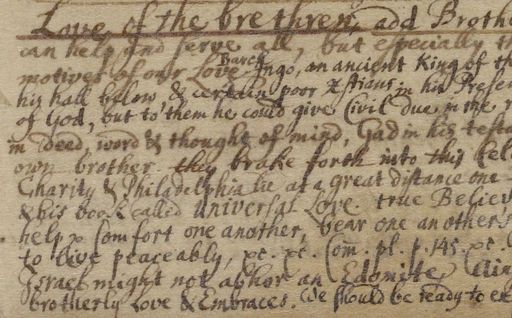 Love of the brethren, add Broth
can help and serve all, but especially th
motives of our Love Barck
Ingo, an ancient King of th
his hall below & certain poor Xstians in his Presen
of God, but to them he could give Civil due in the r
in deed, word & thought of mind, Gad in his testa
own brother they brake forth into this
Charity & Philadelphia lie at a great distance one
& his book called Universal Love. true Believ
help & comfort one another, bear one another's
to live peaceably, &c. &c. Com. pl. p. 145. &c.
Israel might not abhor an Edomite
brotherly Love & Embraces. We should be ready to ex